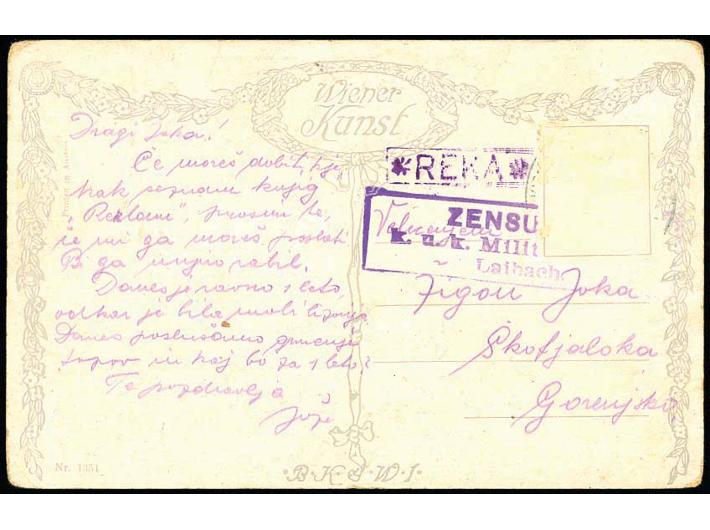 Wiener
Kunst
Dragi Joka!
Če moreš dobiti, kje
kak seznam knjig
"Reklam", prosim te,
če mi ga moreš poslati
Bi ga nujno rabil.
Danes je ravno 1 leto,
odkar je bila
Danes poslušamo grmenje
topov in kaj bo za 1 leto?
Te pozdravlja
Jože
*REKA*
ZENSU
k. u. k. Milit
Laibach
Velecenjeni
Žigon Joka
Škofjaloka
Gorenjsko
Nr. 1351
B.K.W.I.